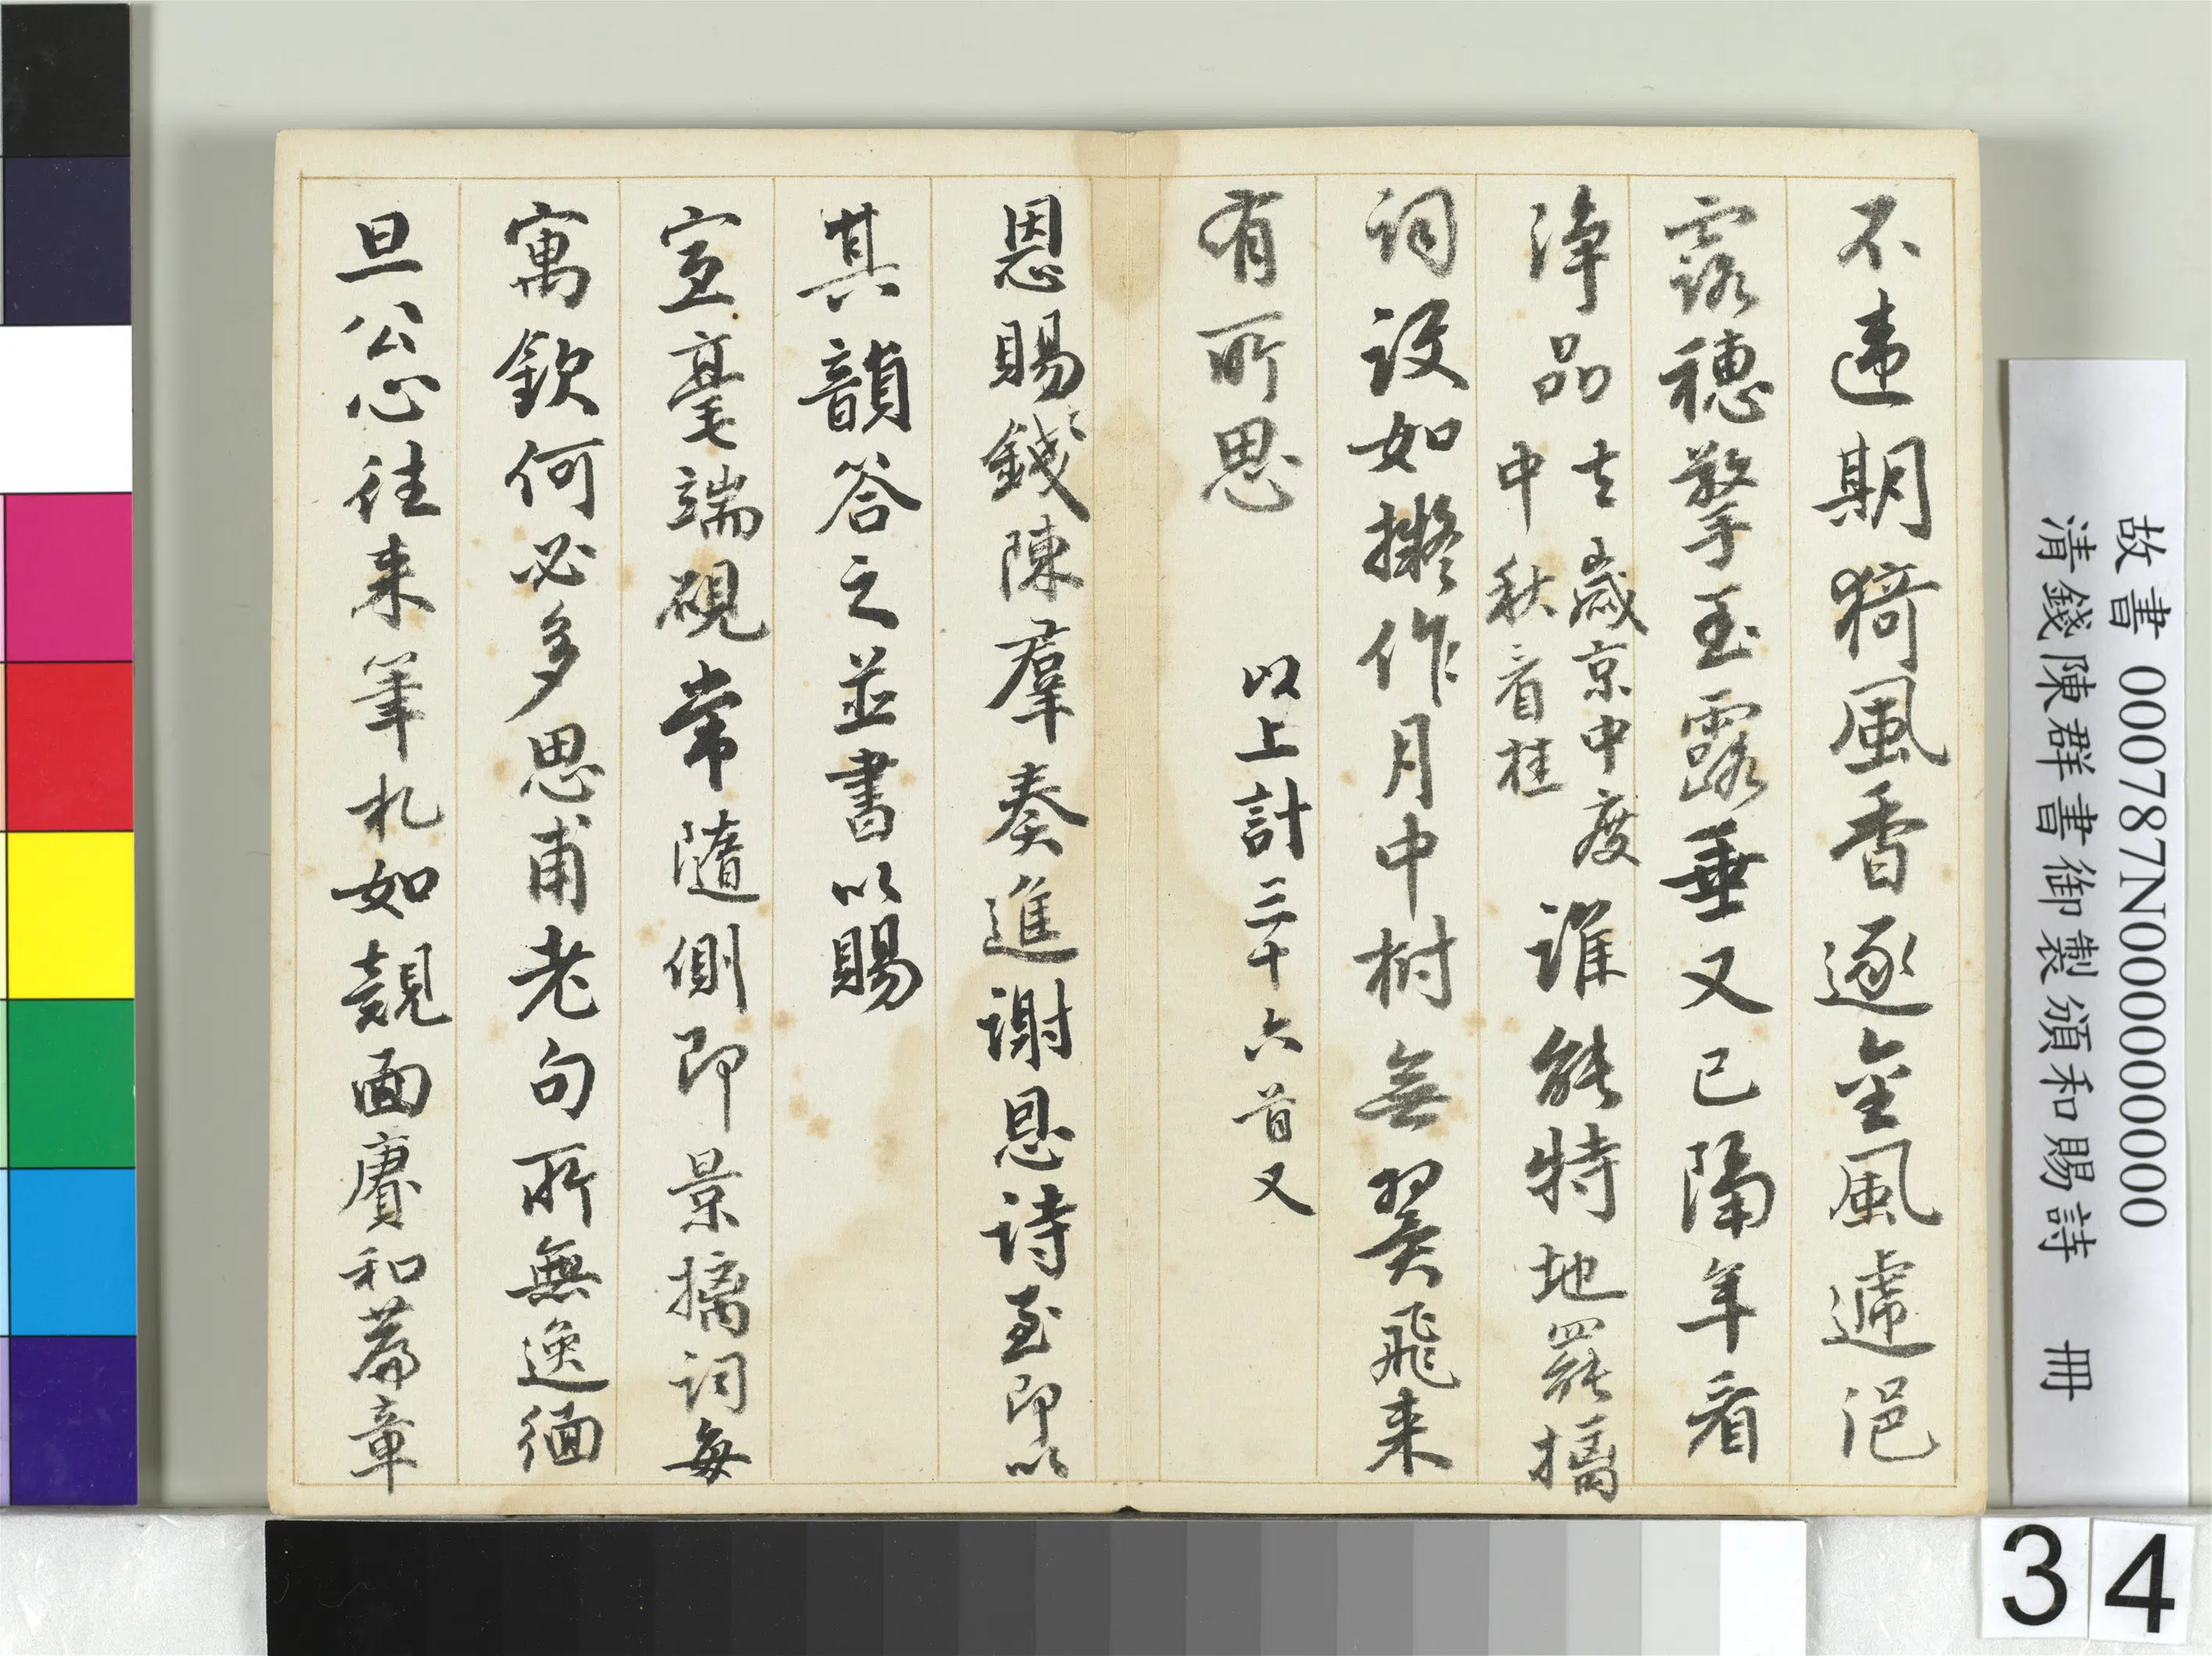 不違期猗風香逐金風遞浥
露穗擎玉露垂又已隔年看
淨品
去歲京中度
中秋看桂
誰能特地羅摛
詞設如擬作月中樹無翼飛来
有所思
以上計三十六首又
恩賜錢陳羣奏進謝恩诗至即以
其韻答之並書以賜
宣毫端硯常隨側即景摛词每
寓欽何必多思甫老句所無逸緬
旦公心往来筆札如覿面賡和篇章
故書 000787N000000000
清錢陳群書御製頒和賜詩 冊
34